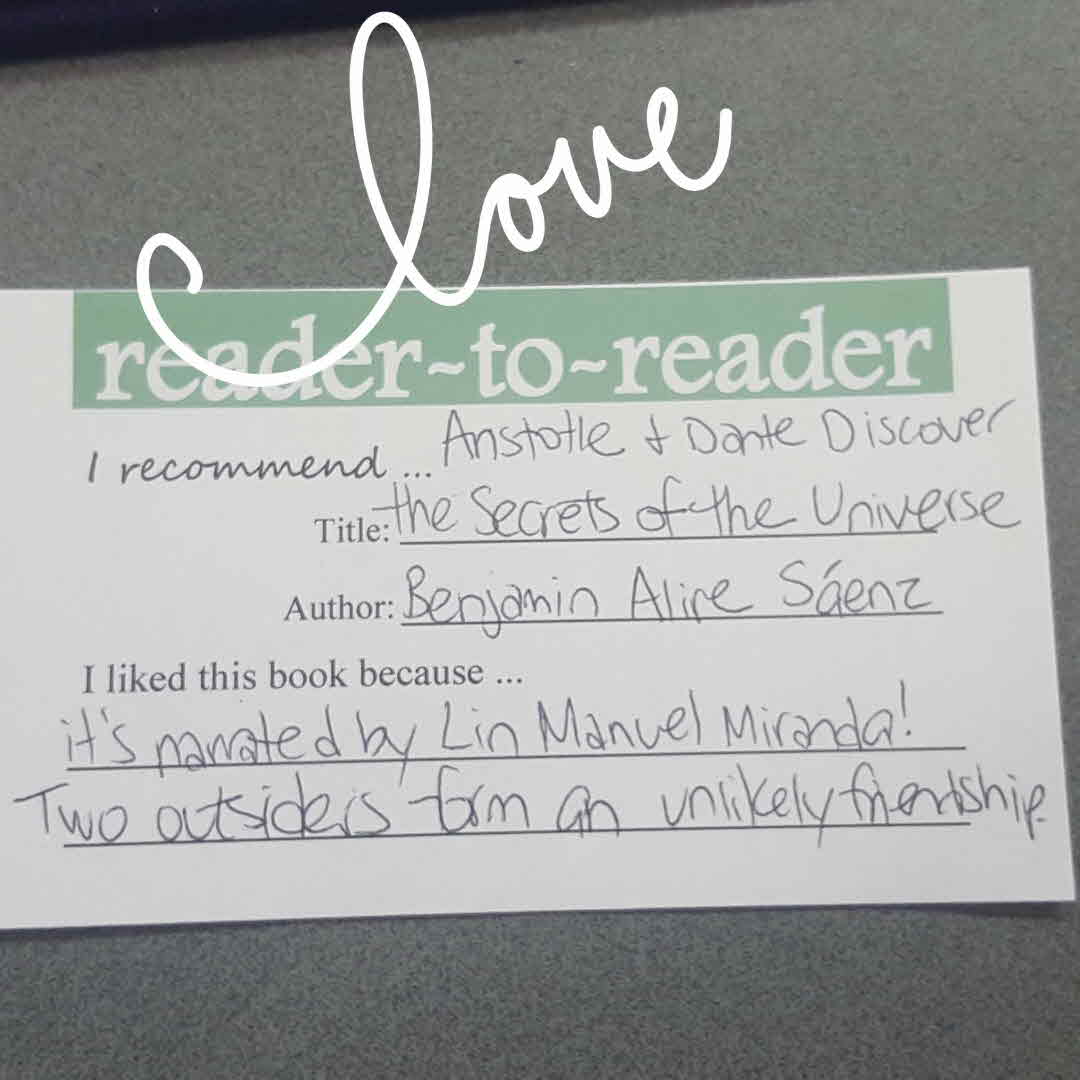 love
reader~to~reader
I recommend ... Aristotle + Dante Discover
Title: the Secrets of the Universe
Author: Benjamin Alire Sáenz
I liked this book because ...
it's narrated by Lin Manuel Miranda!
Two outsiders form an unlikely friendship.